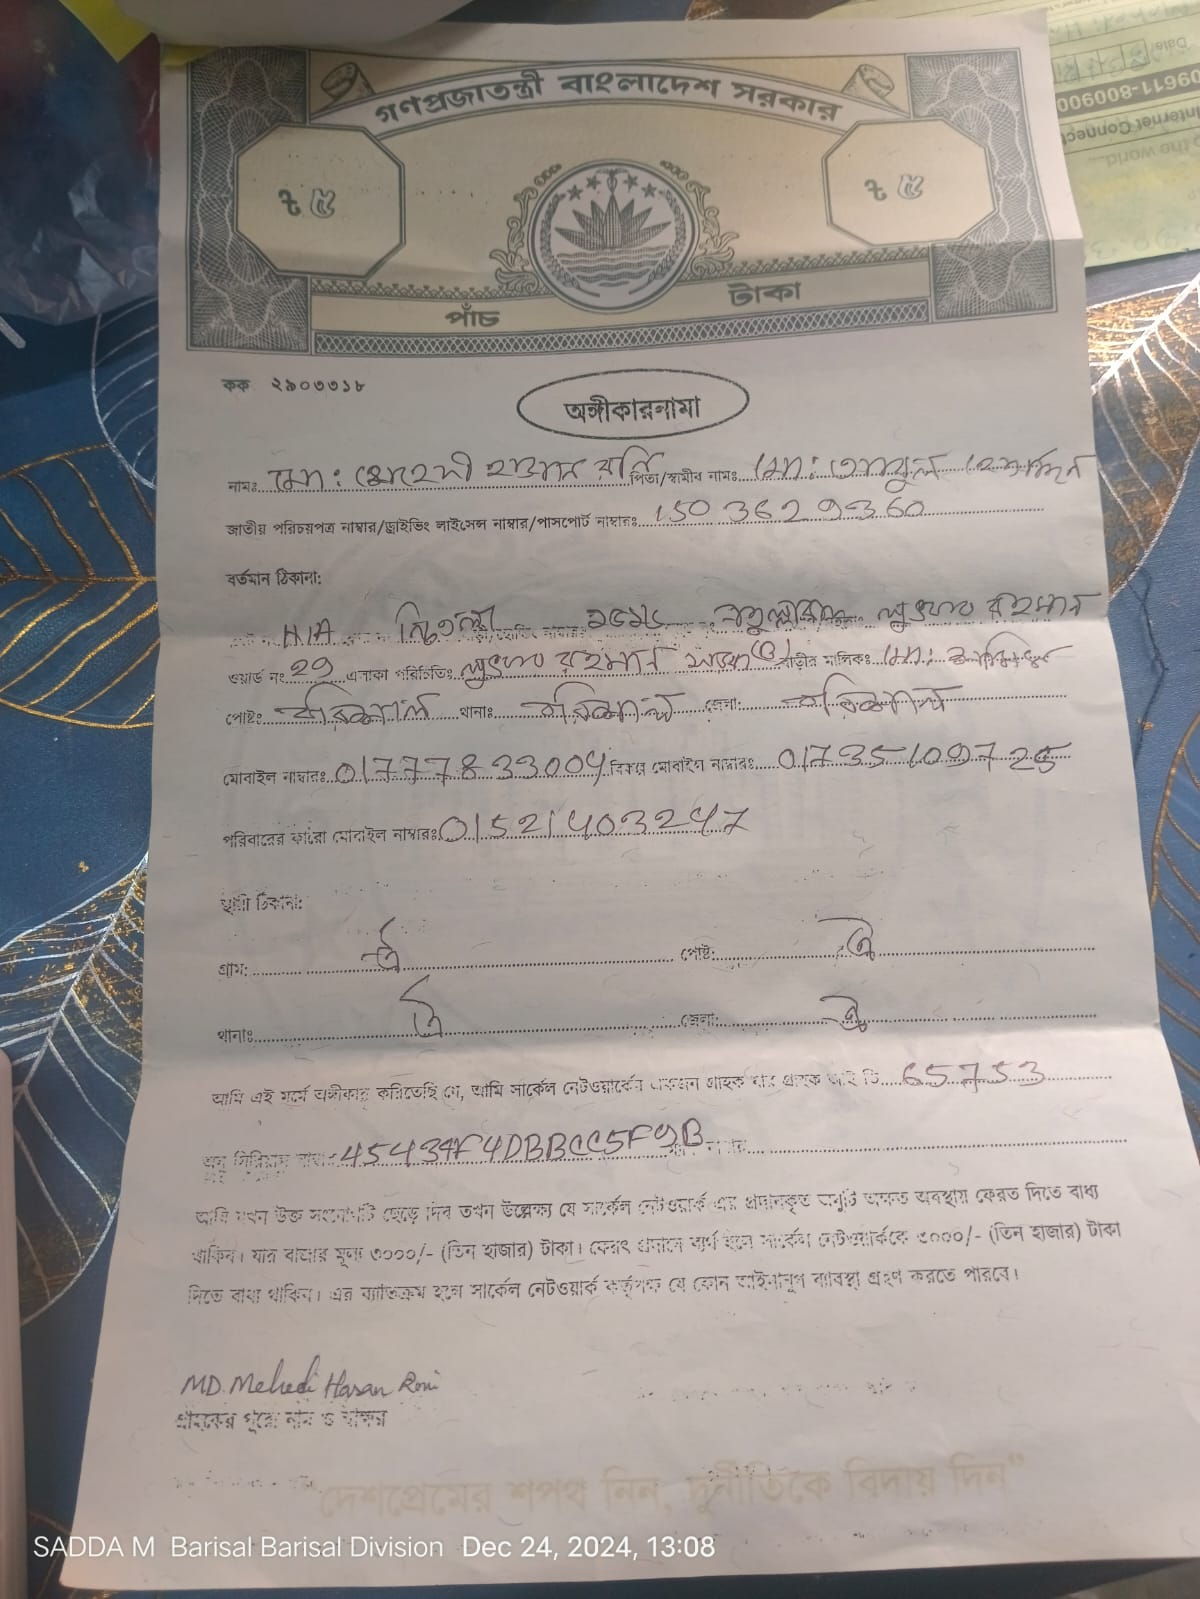 গণপ্রজাতন্ত্রী বাংলাদেশ সরকার
ট ৫ ট ৫
পাঁচ টাকা
কক ২৯০৩৩১৮
অঙ্গীকারনামা
নামঃ মো: মেহেদী হাসান রনি পিতা/স্বামীর নামঃ মো: আবুল হোসেন
জাতীয় পরিচয়পত্র নাম্বার/ড্রাইভিং লাইসেন্স নাম্বার/পাসপোর্ট নাম্বারঃ 1503629360
বর্তমান ঠিকানা:
N/A লুৎফর রহমান
ওয়ার্ড নং 29 এলাকা পরিচিতিঃ লুৎফর রহমান সড়ক বাড়ীর মালিকঃ মো:
পোষ্টঃ বরিশাল থানাঃ বরিশাল জেলা: বরিশাল
মোবাইল নাম্বারঃ 01777833004 বিকল্প মোবাইল নাম্বারঃ 01735109725
পরিবারের কারো মোবাইল নাম্বারঃ 01521403247
স্থায়ী ঠিকানা:
গ্রাম: ঐ পোষ্ট: ঐ
থানাঃ ঐ জেলা: ঐ
আমি এই মর্মে অঙ্গীকার করিতেছি যে, আমি সার্কেল নেটওয়ার্কের একজন গ্রাহক যার গ্রাহক আই ডি 65753
অনু সিরিয়াল নাম্বার 45434F4DBBCC5F9B
আমি যখন উক্ত সংযোগটি ছেড়ে দিব তখন উল্লেক্ষ্য যে সার্কেল নেটওয়ার্ক এর প্রদানকৃত অনুটি অক্ষত অবস্থায় ফেরত দিতে বাধ্য
থাকিব। যার বাজার মূল্য ৩০০০/- (তিন হাজার) টাকা। ফেরৎ প্রদানে ব্যর্থ হলে সার্কেল নেটওয়ার্ককে ৩০০০/- (তিন হাজার) টাকা
দিতে বাধ্য থাকিব। এর ব্যাতিক্রম হলে সার্কেল নেটওয়ার্ক কর্তৃপক্ষ যে কোন আইনানুগ ব্যাবস্থা গ্রহণ করতে পারবে।
MD. Mehedi Hasan Roni
গ্রাহকের পুরো নাম ও স্বাক্ষর
"দেশপ্রেমের শপথ নিন, দুর্নীতিকে বিদায় দিন"
SADDA M Barisal Barisal Division Dec 24, 2024, 13:08